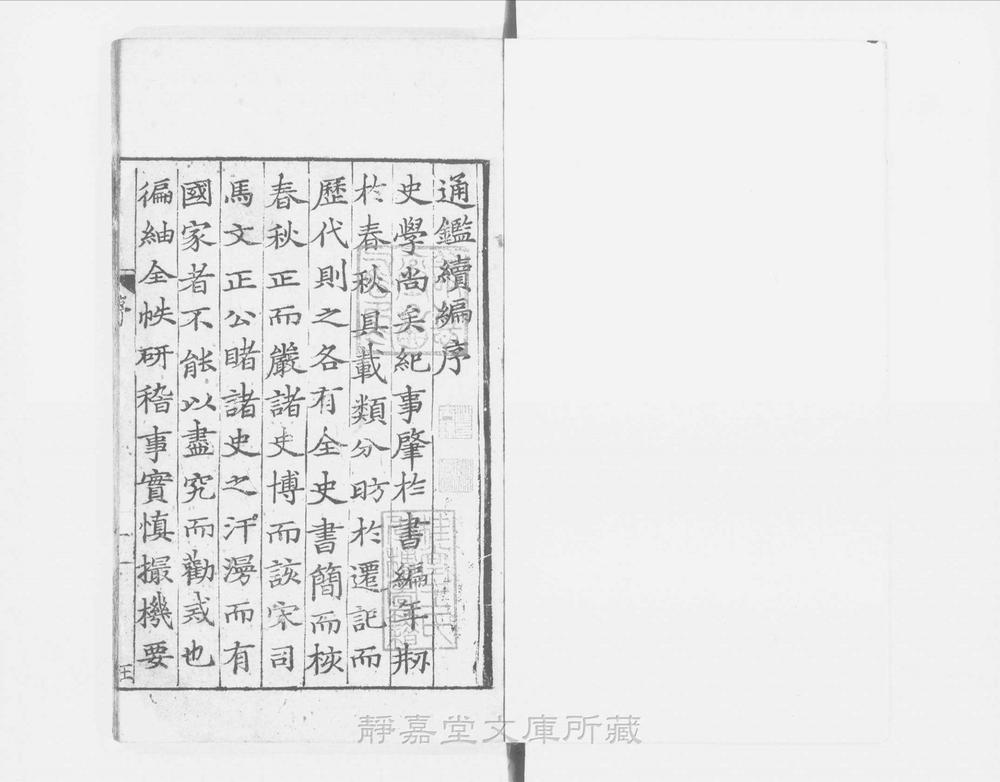 通鑑續編序
史學尚矣紀事肇扵書編年剏
扵春秋具載類分昉扵遷記而
歷代則之各有全史書簡而核
春秋正而嚴諸史博而該宋司
馬文正公睹諸史之汗漫而有
國家者不能以盡究而勸戒也
徧紬全帙研稽事實慎撮機要
序
一
王
靜嘉堂文庫所藏